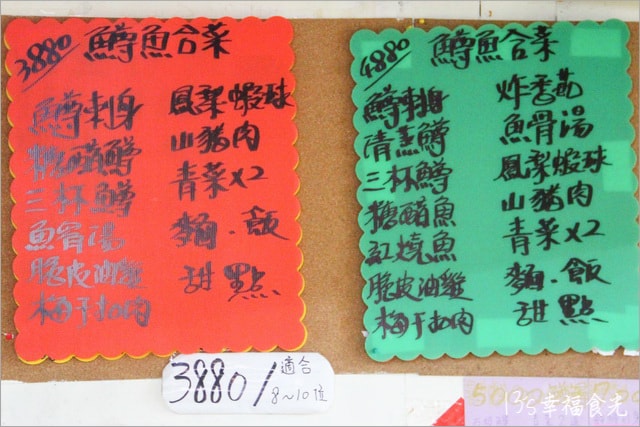 3880/ 鱒魚合菜
鱒刺身
糖醋鱒
三杯鱒
魚骨湯
脆皮油雞
梅干扣肉
鳳梨蝦球
山豬肉
青菜x2
麵.飯
甜點
4880/ 鱒魚合菜
鱒刺身
清蒸鱒
三杯鱒
糖醋魚
紅燒魚
脆皮油雞
梅干扣肉
炸香菇
魚骨湯
鳳梨蝦球
山豬肉
青菜x2
麵.飯
甜點
3880/ 適合
8~10位
135幸福食光